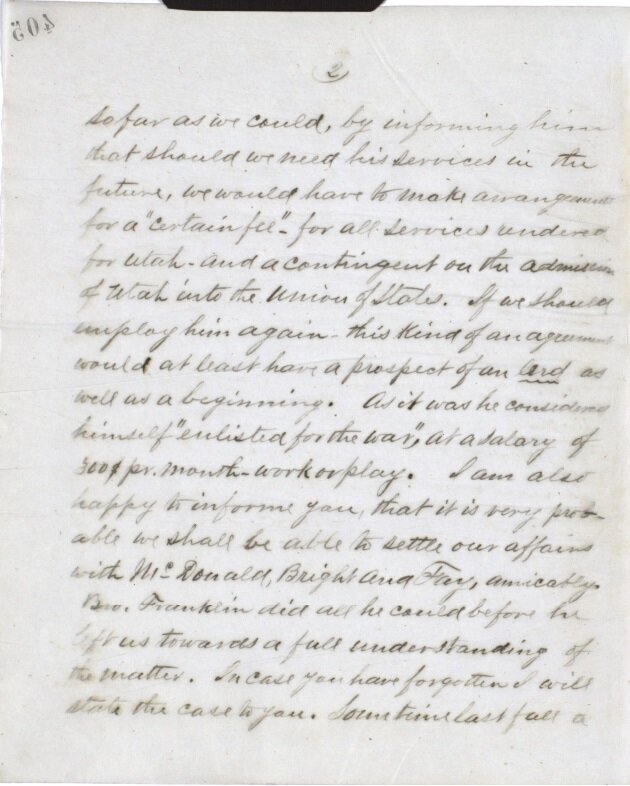 405
2
so far as we could, by informing him
that should we need his services in the
future, we would have to make arrangements
for a "certain fee" - for all services rendered
for Utah - and a contingent on the admission
of Utah into the Union of States. If we should
employ him again - this kind of an agreement
would at least have a prospect of an end as
well as a beginning. As it was he considered
himself "enlisted for the war", at a salary of
300$ pr. month - work or play. I am also
happy to informe you, that it is very prob-
able we shall be able to settle our affairs
with Mc Donald, Bright and Fay, amicably.
Bro. Franklin did all he could before he
left us towards a full understanding of
the matter. In case you have forgotten I will
state the case to you. Sometime last fall a